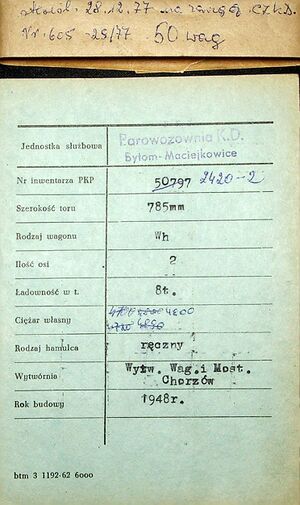 28.12.77 na
Nr. 605-25/77 50 wag
Jednostka służbowa Parowozownia K.D.
Bytom-Maciejkowice
Nr inwentarza PKP 50797 2420-2
Szerokość toru 785mm
Rodzaj wagonu Wh
Ilość osi 2
Ładowność w t. 8t.
Ciężar własny 4800
Rodzaj hamulca ręczny
Wytwórnia Wytw. Wag.i Most.
Chorzów
Rok budowy 1948r.
btm 3 1192-62 6000